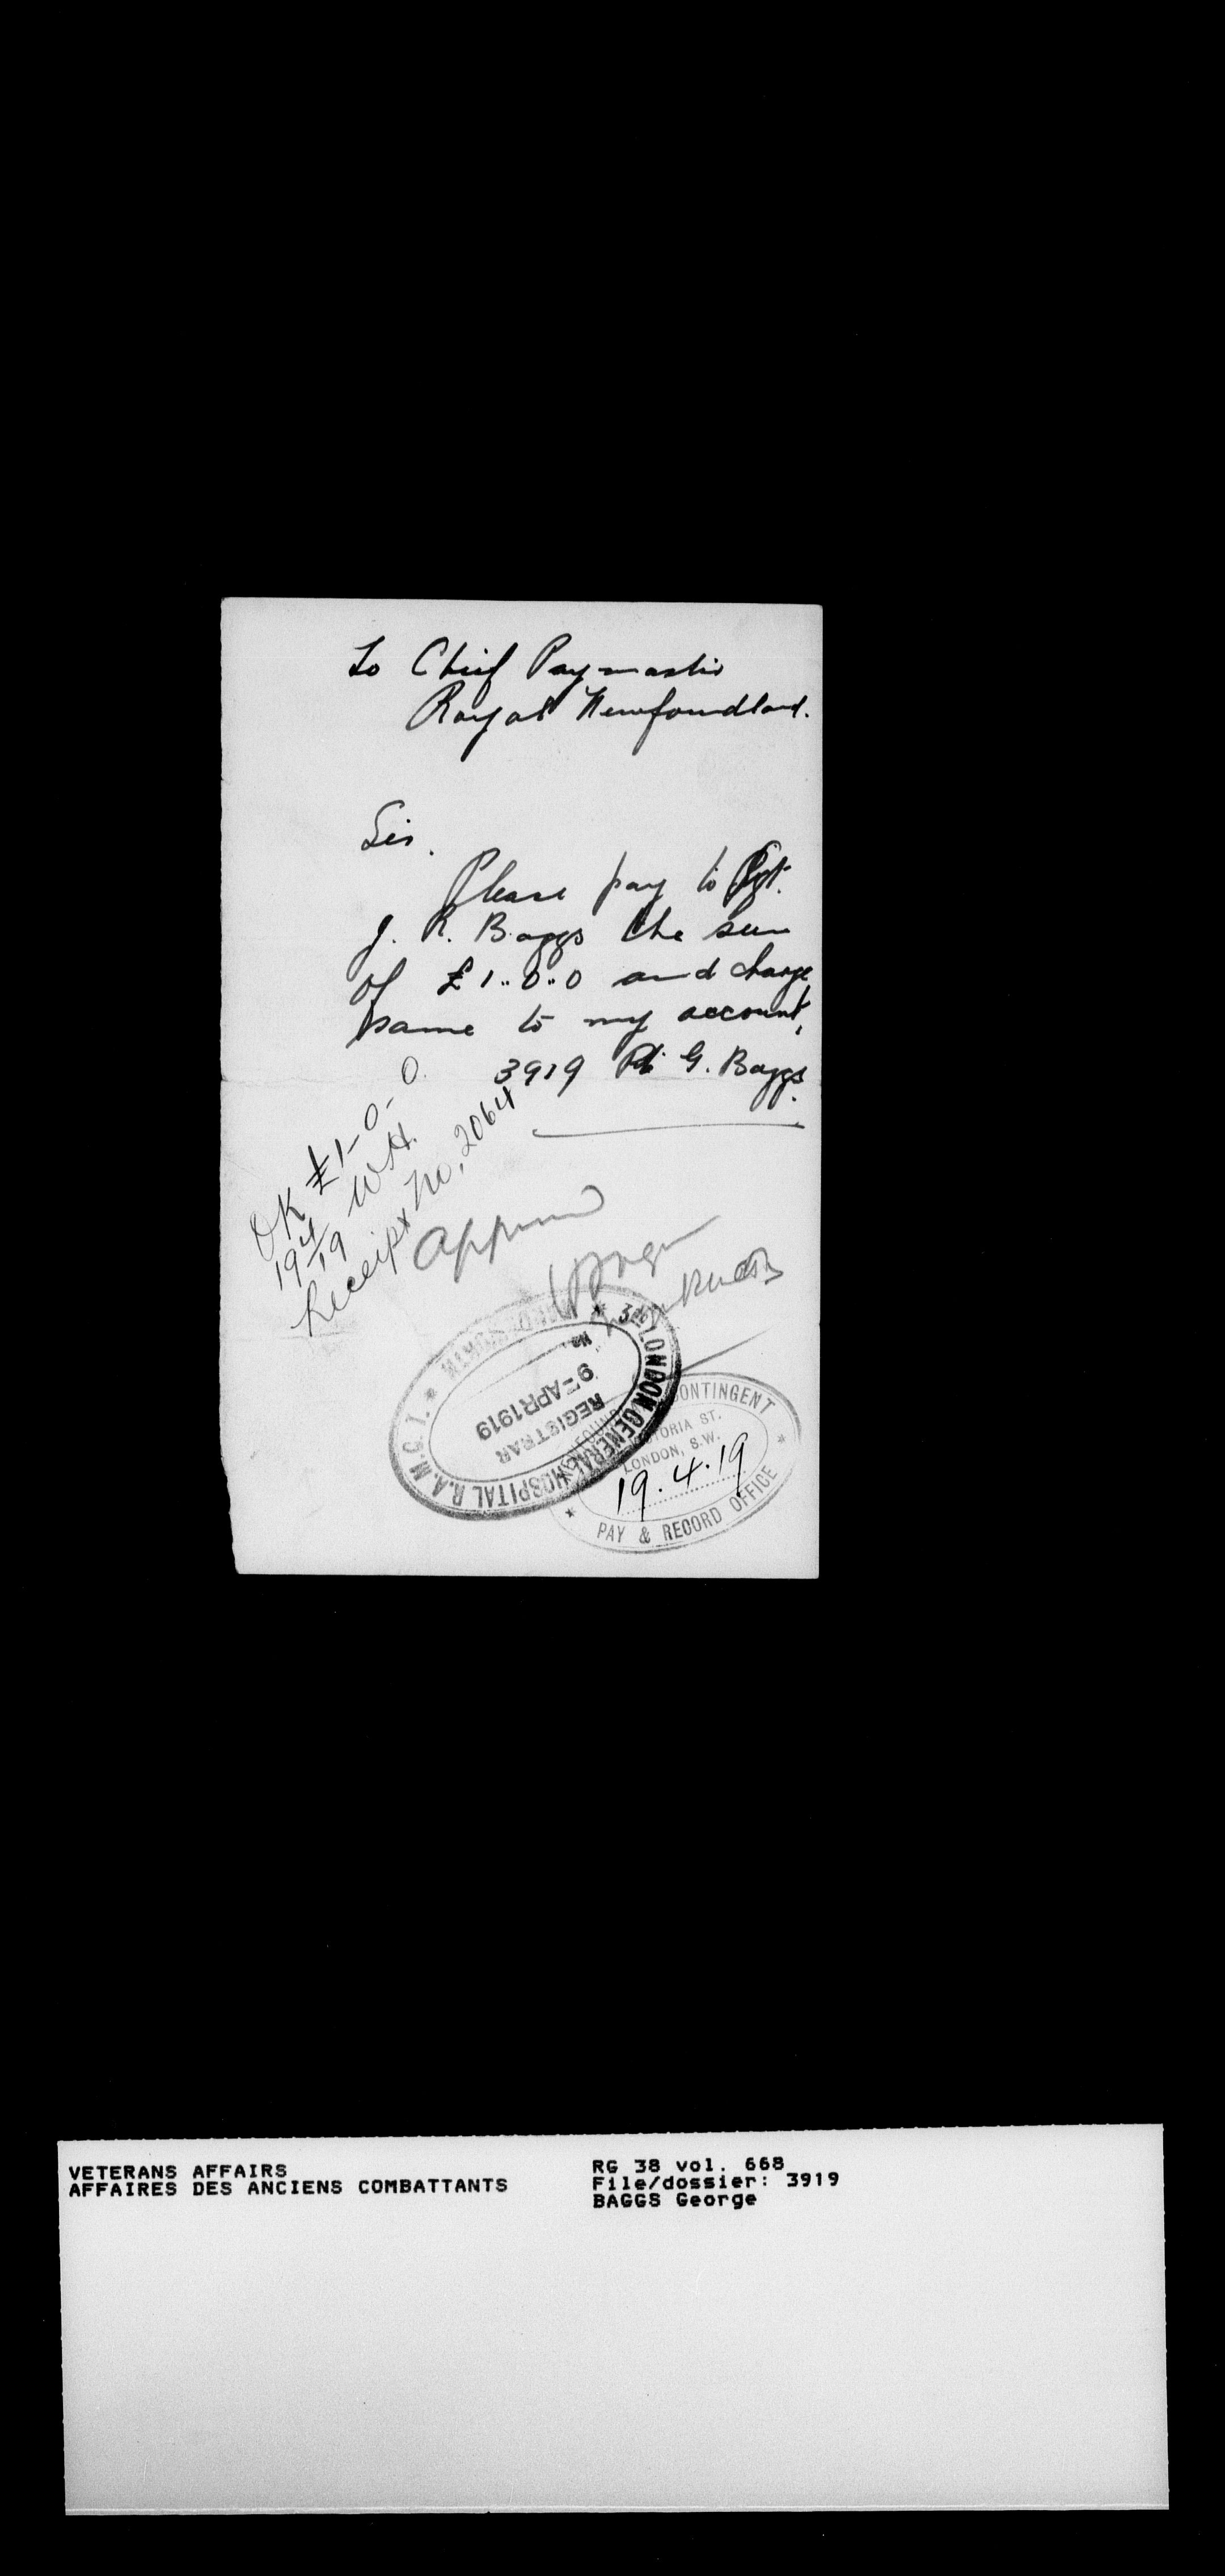 To Chief Paymaster
Royal Newfoundland.
Sir.
Please pay to Sgt.
J. R. Baggs the sum
of £1..0..0 and charge
same to my account,
3919 Pte G. Baggs.
OK £1-0-0.
19/4/19 WH.
Receipt No, 2064
Approved
3RD LONDON GENERAL HOSPITAL R.A.M.C.T. * WANDSWORTH *
No.
9-APR 1919
REGISTRAR
CONTINGENT
VICTORIA ST.
LONDON, S.W.
19.4.19
PAY & RECORD OFFICE
VETERANS AFFAIRS
AFFAIRES DES ANCIENS COMBATTANTS
RG 38 vol. 668
File/dossier: 3919
BAGGS George